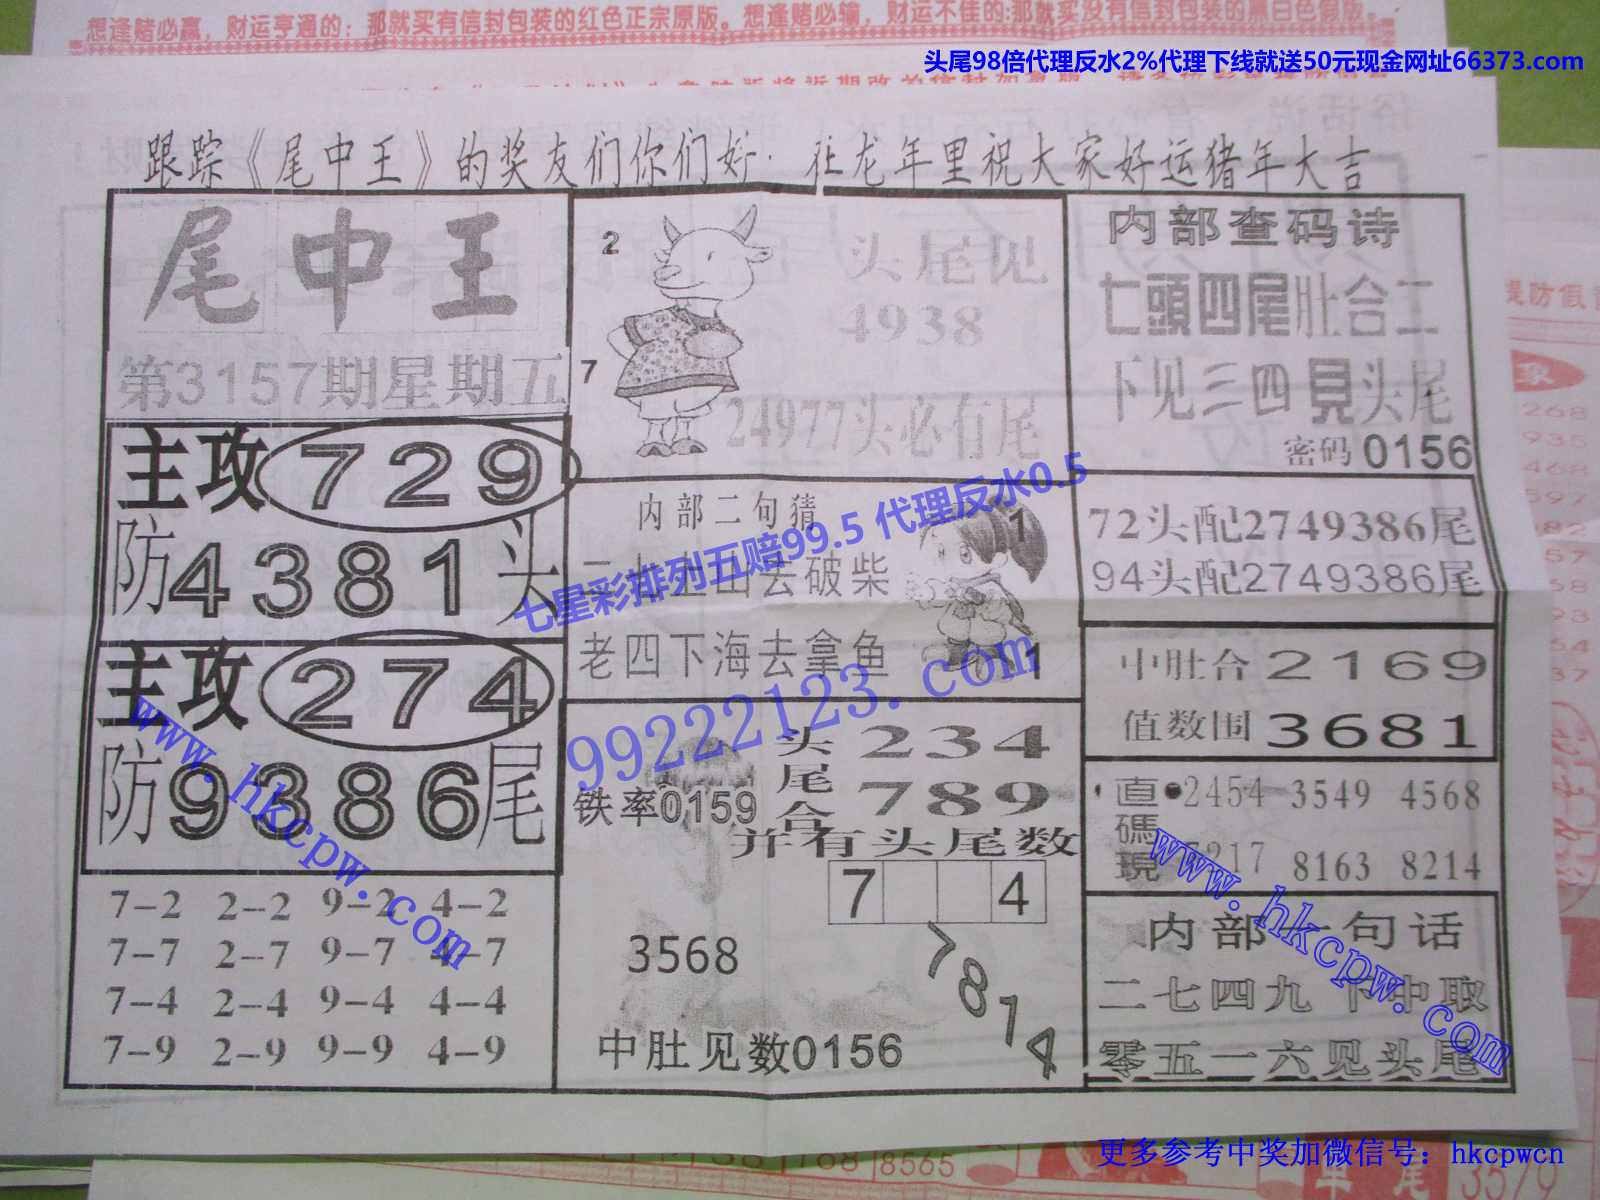 想逢赌必赢，财运亨通的：那就买有信封包装的红色正宗原版。想逢赌必输，财运不佳的:那就买没有信封包装的黑白色假版
头尾98倍代理反水2%代理下线就送50元现金网址66373.com
跟踪《尾中王》的奖友们你们好·在龙年里祝大家好运猪年大吉
尾中王
第3157期星期五
主攻729
防4381头
主攻274
防9386尾
7-2 2-2 9-2 4-2
7-7 2-7 9-7 4-7
7-4 2-4 9-4 4-4
7-9 2-9 9-9 4-9
2
7
头尾见
4938
24977头必有尾
内部二句猜
上山去破柴
老四下海去拿鱼
1
1
七星彩排列五赔99.5 代理反水0.5
99222123.com
头尾合
234
789
铁率0159
并有头尾数
7 4
3568
7814
中肚见数0156
内部查码诗
七頭四尾肚合二
下见三四見头尾
密码0156
72头配2749386尾
94头配2749386尾
中肚合2169
值数围3681
直碼現
2454 3549 4568
217 8163 8214
内部一句话
二七四九 下中取
零五一六见头尾
www.hkcpw.com
www.hkcpw.com
提防假冒
268
935
468
597
8565
3579
更多参考中奖加微信号：hkcpwcn